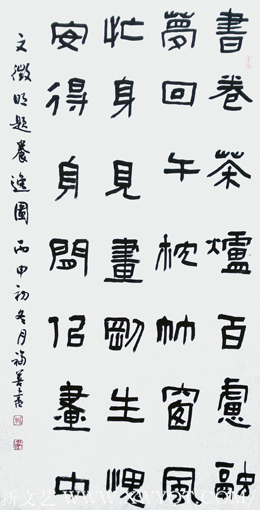 書卷茶爐百慮融
夢回午枕竹窗風
忙身見畫剛生愧
安得身閒佀畫中
文徵明題養逸圖 丙申初冬月福善書